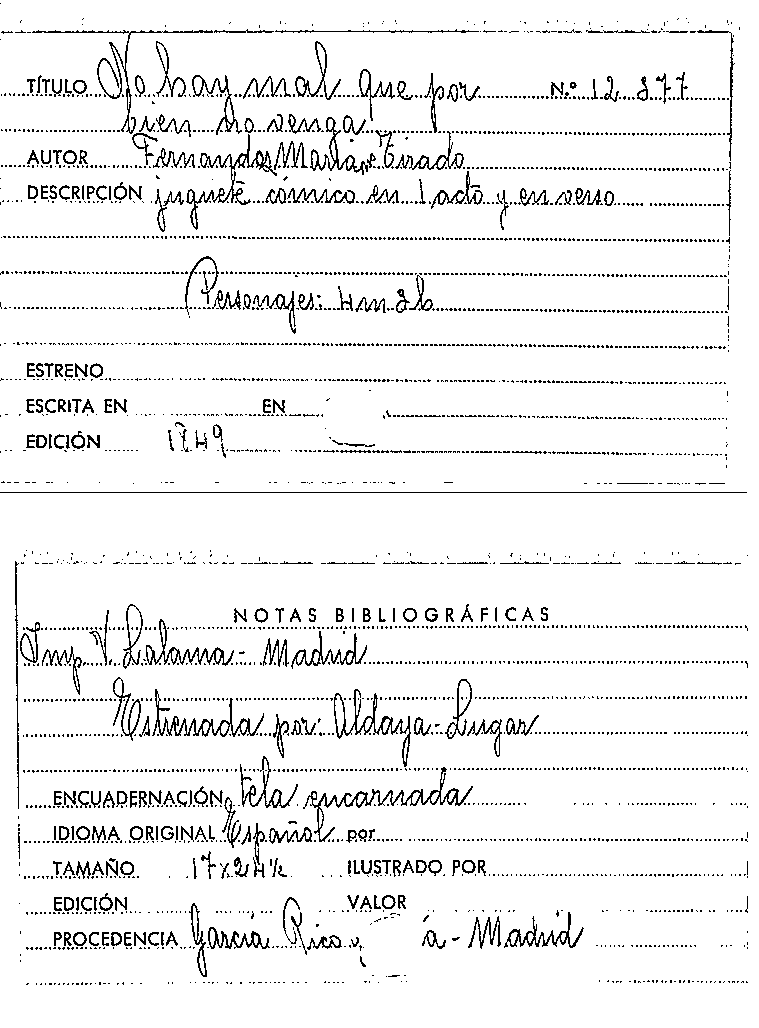 TÍTULO No hay mal que por N.º 12.377
bien no venga
AUTOR Fernandez, Mariano Tirado
DESCRIPCIÓN juguete cómico en 1 acto y en verso
Personajes: 4m 3h
ESTRENO
ESCRITA EN EN
EDICIÓN 1749
NOTAS BIBLIOGRÁFICAS
Imp. V. Lalama - Madrid
Estrenada por: Aldaya - Lugar
ENCUADERNACIÓN tela encarnada
IDIOMA ORIGINAL Español por
TAMAÑO 17x24½ ILUSTRADO POR
EDICIÓN VALOR
PROCEDENCIA García Rico y á - Madrid